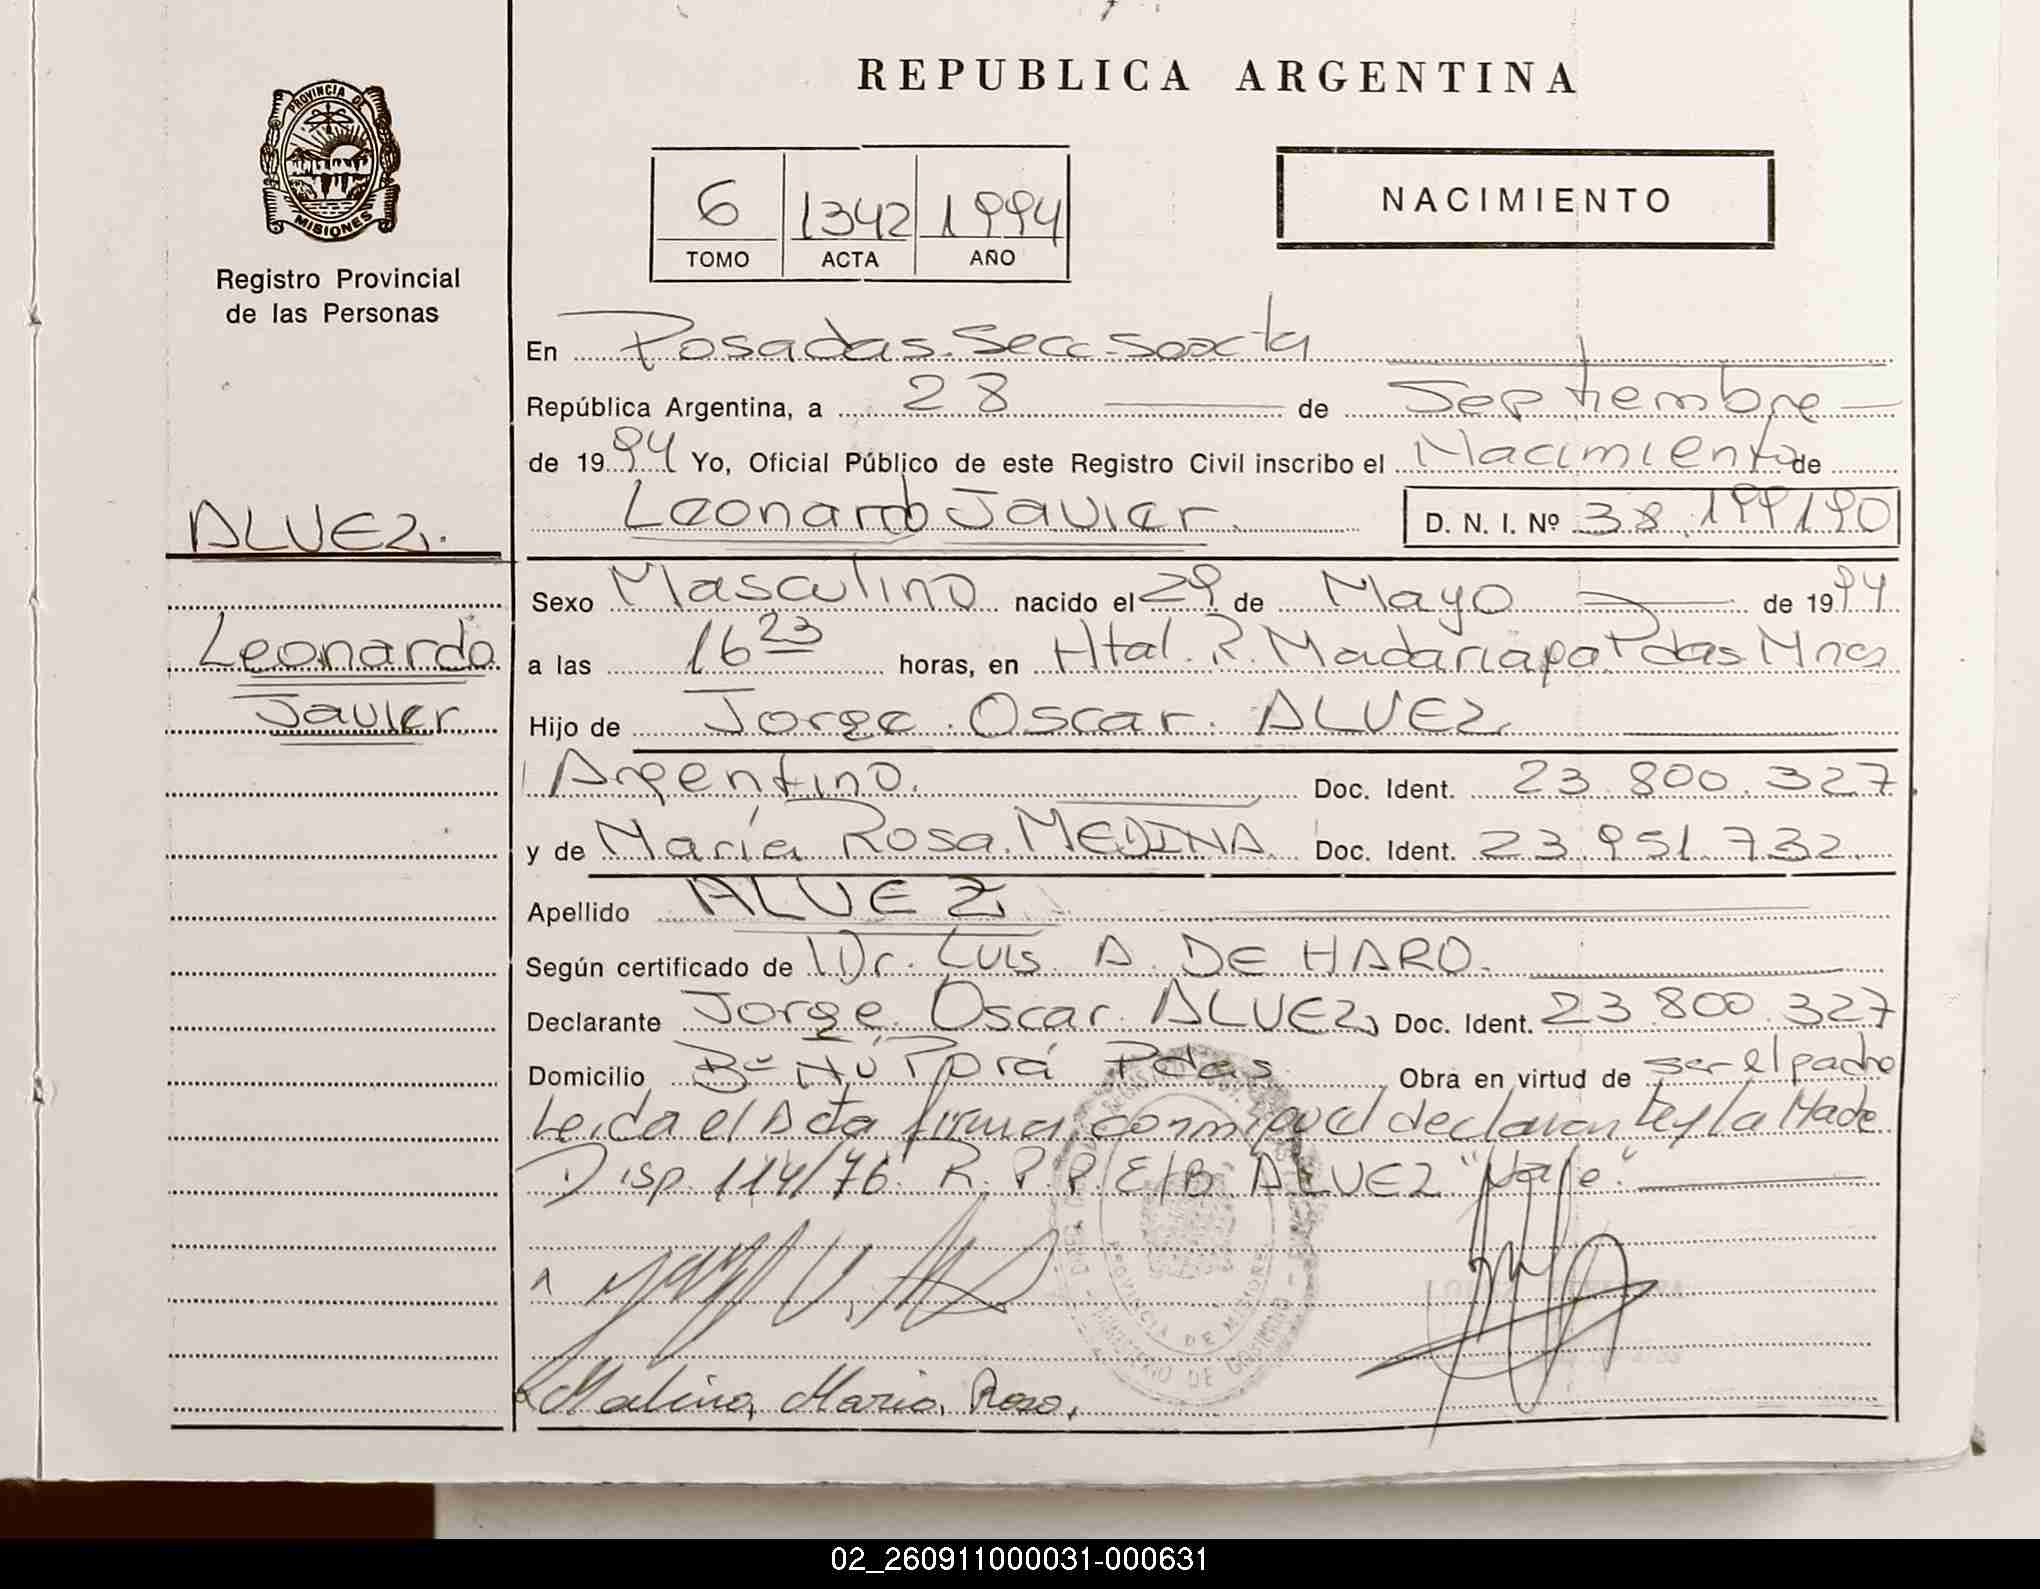 REPUBLICA ARGENTINA
PROVINCIA DE
MISIONES
Registro Provincial
de las Personas
6 1342 1994
TOMO ACTA AÑO
NACIMIENTO
En Posadas. Secc. Sexta
República Argentina, a 28 de Septiembre
de 1994 Yo, Oficial Público de este Registro Civil inscribo el Nacimiento de
Leonardo Javier. D. N. I. Nº 38.199190
ALVEZ.
Leonardo
Javier
Sexo Masculino nacido el 29 de Mayo de 1994
a las 16 23 horas, en Htal. R. Madariaga Pdas. Mnes
Hijo de Jorge Oscar ALVEZ
Argentino. Doc. Ident. 23.800.327
y de María Rosa MEDINA Doc. Ident. 23.951.732
Apellido ALVEZ
Según certificado de Dr. Luis A. DE HARO.
Declarante Jorge Oscar ALVEZ Doc. Ident. 23.800.327
Domicilio Bº Ñú Porá Pdas Obra en virtud de ser el padre
Leida el Acta firma conmigo el declarante y la Madre
Disp. 114/76 R.P.P. E/B. ALVEZ "Vale".
PROVINCIA DE MISIONES
MINISTERIO DE GOBIERNO
Medina, Maria, Rosa.
02_260911000031-000631